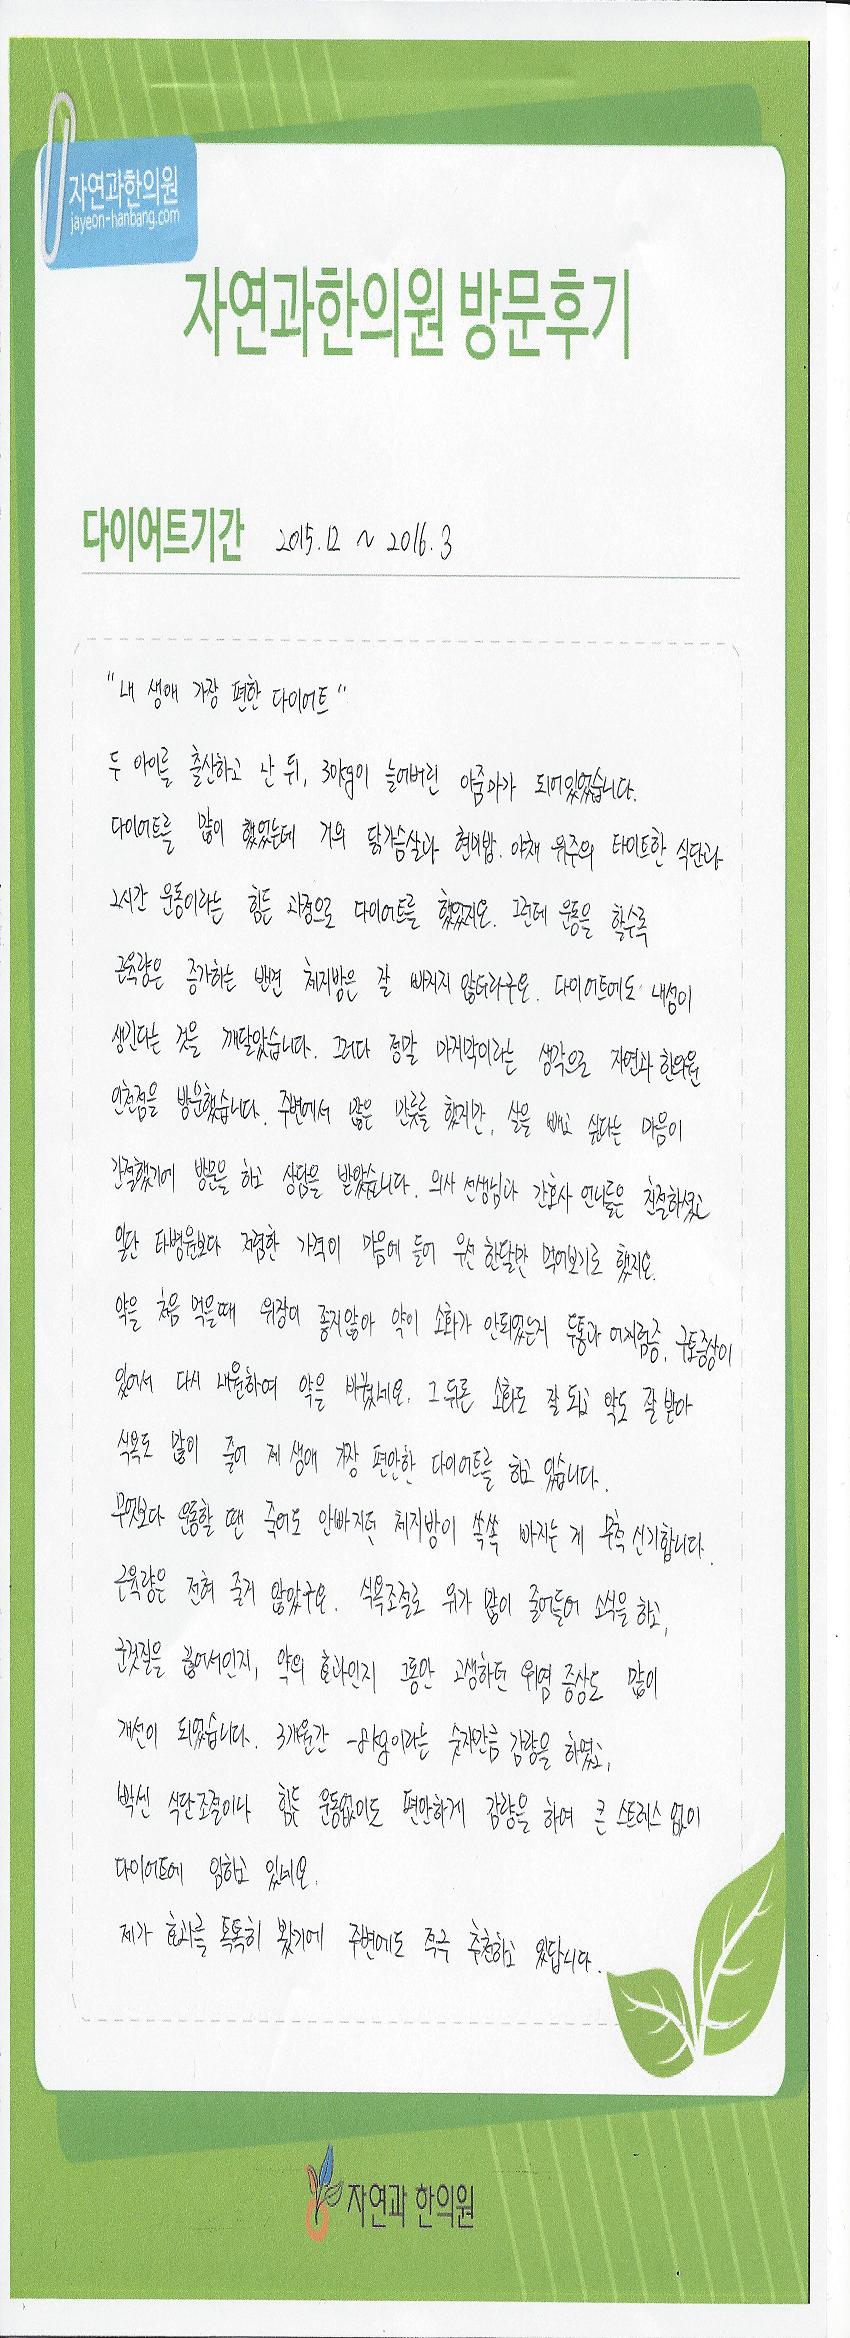 자연과한의원
jayeon-hanbang.com
자연과한의원 방문후기
다이어트기간 2015.12 ~ 2016.3
"내 생애 가장 편한 다이어트"
두 아이를 출산하고 난 뒤, 30kg이 늘어버린 아줌마가 되어있었습니다.
다이어트를 많이 했었는데 거의 닭가슴살과 현미밥. 야채 위주의 타이트한 식단과
2시간 운동이라는 힘든 과정으로 다이어트를 했었지요. 그런데 운동을 할수록
근육량은 증가하는 반면 체지방은 잘 빠지지 않더라구요. 다이어트에도 내성이
생긴다는 것을 깨달았습니다. 그러다 정말 마지막이라는 생각으로 자연과한의원
인천점을 방문했습니다. 주변에서 많은 만류를 했지만, 살을 빼고 싶다는 마음이
간절했기에 방문을 하고 상담을 받았습니다. 의사 선생님과 간호사 언니들은 친절하셨고
일단 타병원보다 저렴한 가격이 마음에 들어 우선 한달만 먹어보기로 했지요.
약을 처음 먹을때 위장이 좋지않아 약이 소화가 안되었는지 두통과 어지럼증, 구토증상이
있어서 다시 내원하여 약을 바꿨네요. 그 뒤론 소화도 잘 되고 약도 잘 받아
식욕도 많이 줄어 제 생애 가장 편안한 다이어트를 하고 있습니다.
무엇보다 운동할 땐 죽어도 안빠지던 체지방이 쏙쏙 빠지는 게 무척 신기합니다.
근육량은 전혀 줄지 않았구요. 식욕조절로 위가 많이 줄어들어 소식을 하고,
군것질을 끊어서인지, 약의 효과인지 그동안 고생하던 위염 증상도 많이
개선이 되었습니다. 3개월간 -8kg이라는 숫자만큼 감량을 하였고,
빡센 식단조절이나 힘든 운동없이도 편안하게 감량을 하여 큰 스트레스 없이
다이어트에 임하고 있네요.
제가 효과를 톡톡히 봤기에 주변에도 적극 추천하고 있답니다.
자연과 한의원